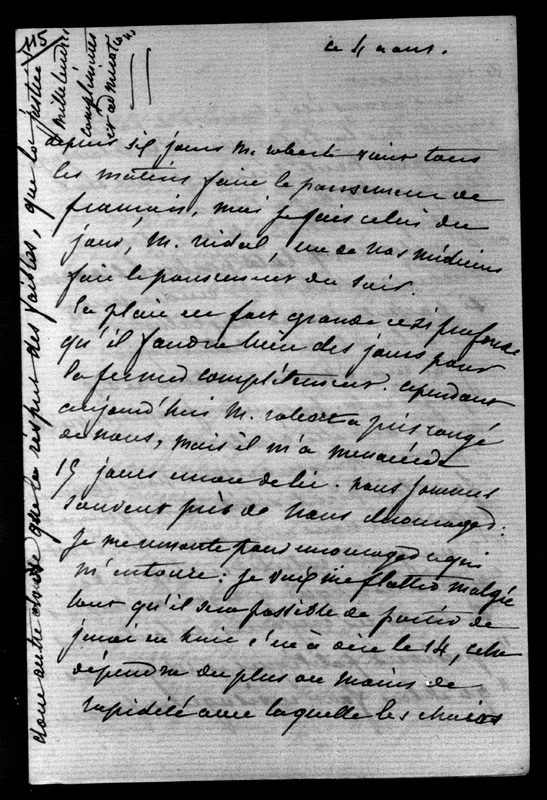 115
mille tendres
compliments
et
ce 4 aout.
depuis six jours M. robert vient tous
les matins faire le pansement de
francis, mais je fais celui du
jour, M. vidal un de nos médecins
fait le pansement du soir.
la plaie est fort grande et si profonde
qu'il faudra bien des jours pour
la fermer complètement. cependant
aujourd'hui M. robert a pris congé
de nous, mais il m'a
15 jours encore de lit. nous sommes
souvent près de nous décourager.
je me remonte pour encourager ce qui
m'entoure; je veux me flatter malgré
tout qu'il sera possible de partir de
jeudi en huit c'est à dire le 14, cela
dépendra du plus ou moins de
rapidité avec laquelle les chairs
autre chose que le respect des faibles, que la justice